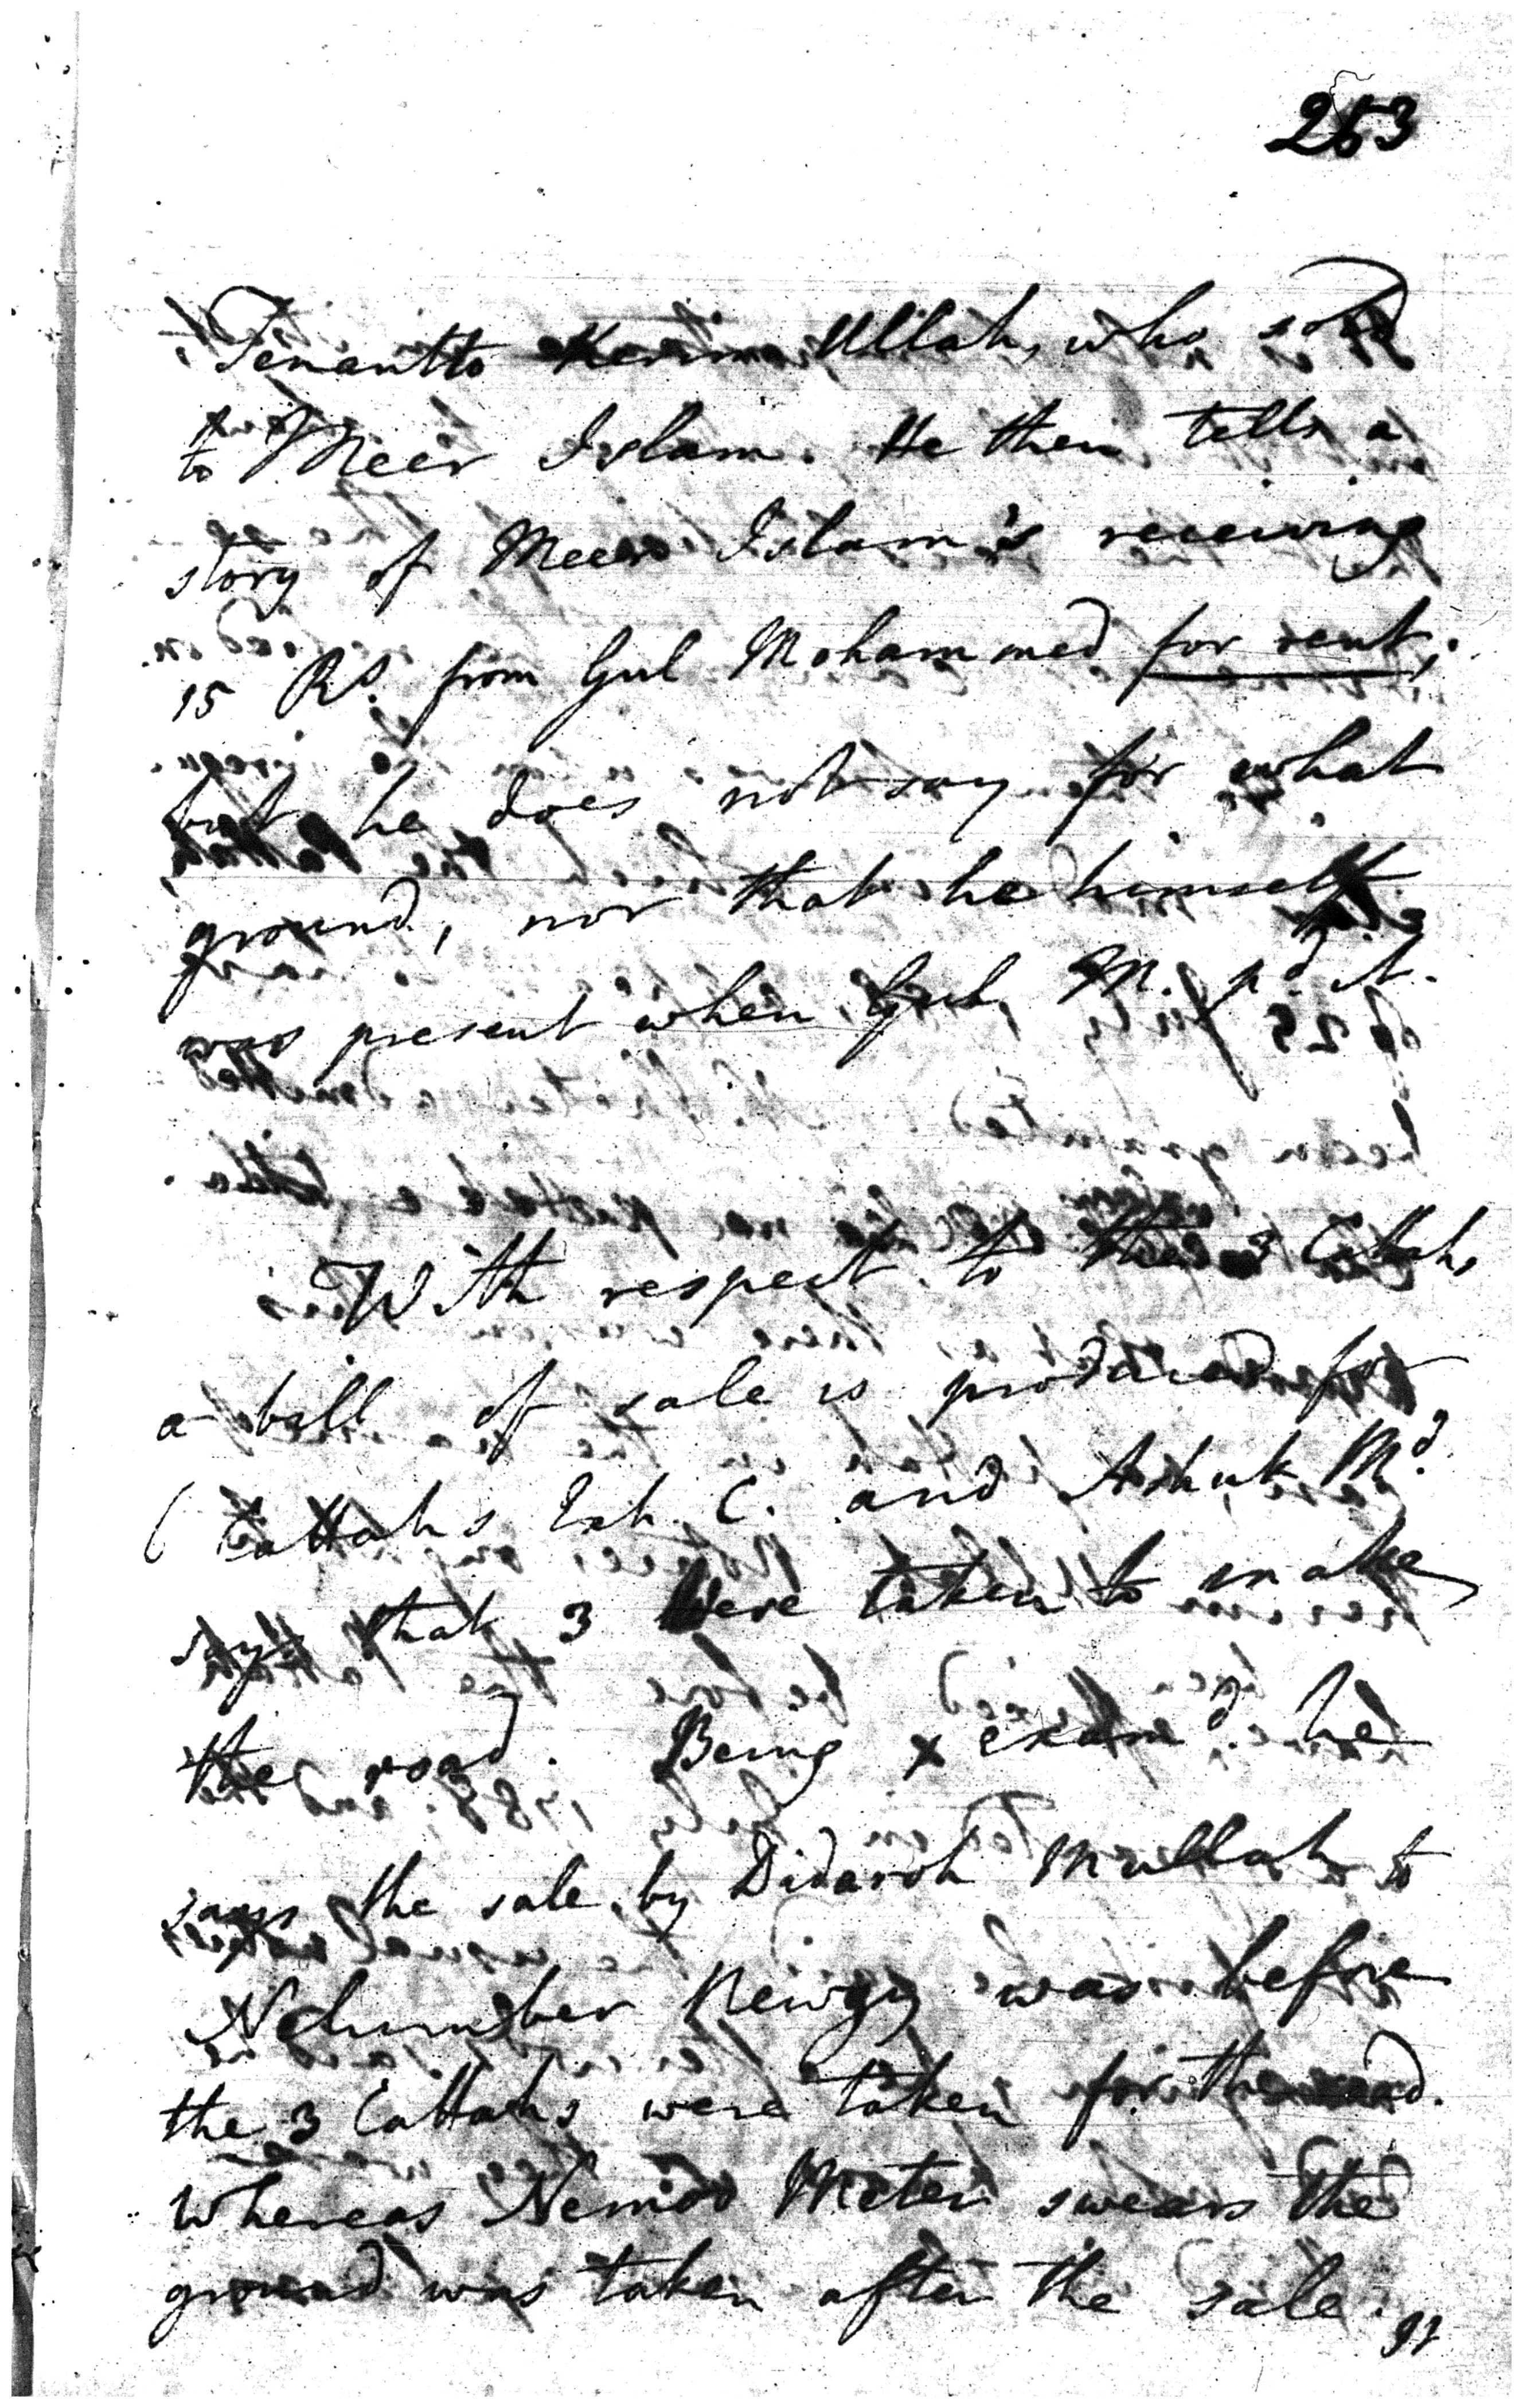 253
Tenant to Kerim Ullah, who sold
to Meer Islam. He then tells a
story of Meer Islam's receiving
15 Rs. from Gul Mohammed for rent;
but he does not say for what
ground, nor that he himself
was present when Gul M. pd. it.
With respect to the 3 Cattahs
a bill of sale is produced for
6 Cattahs Exh. C. and Ashuk Md.
says that 3 were taken to make
the road. Being x examd. he
says the sale by Didaroh Mullah to
was before
the 3 Cattahs were taken for the road.
Whereas Nemoo Meter swears the
ground was taken after the sale.